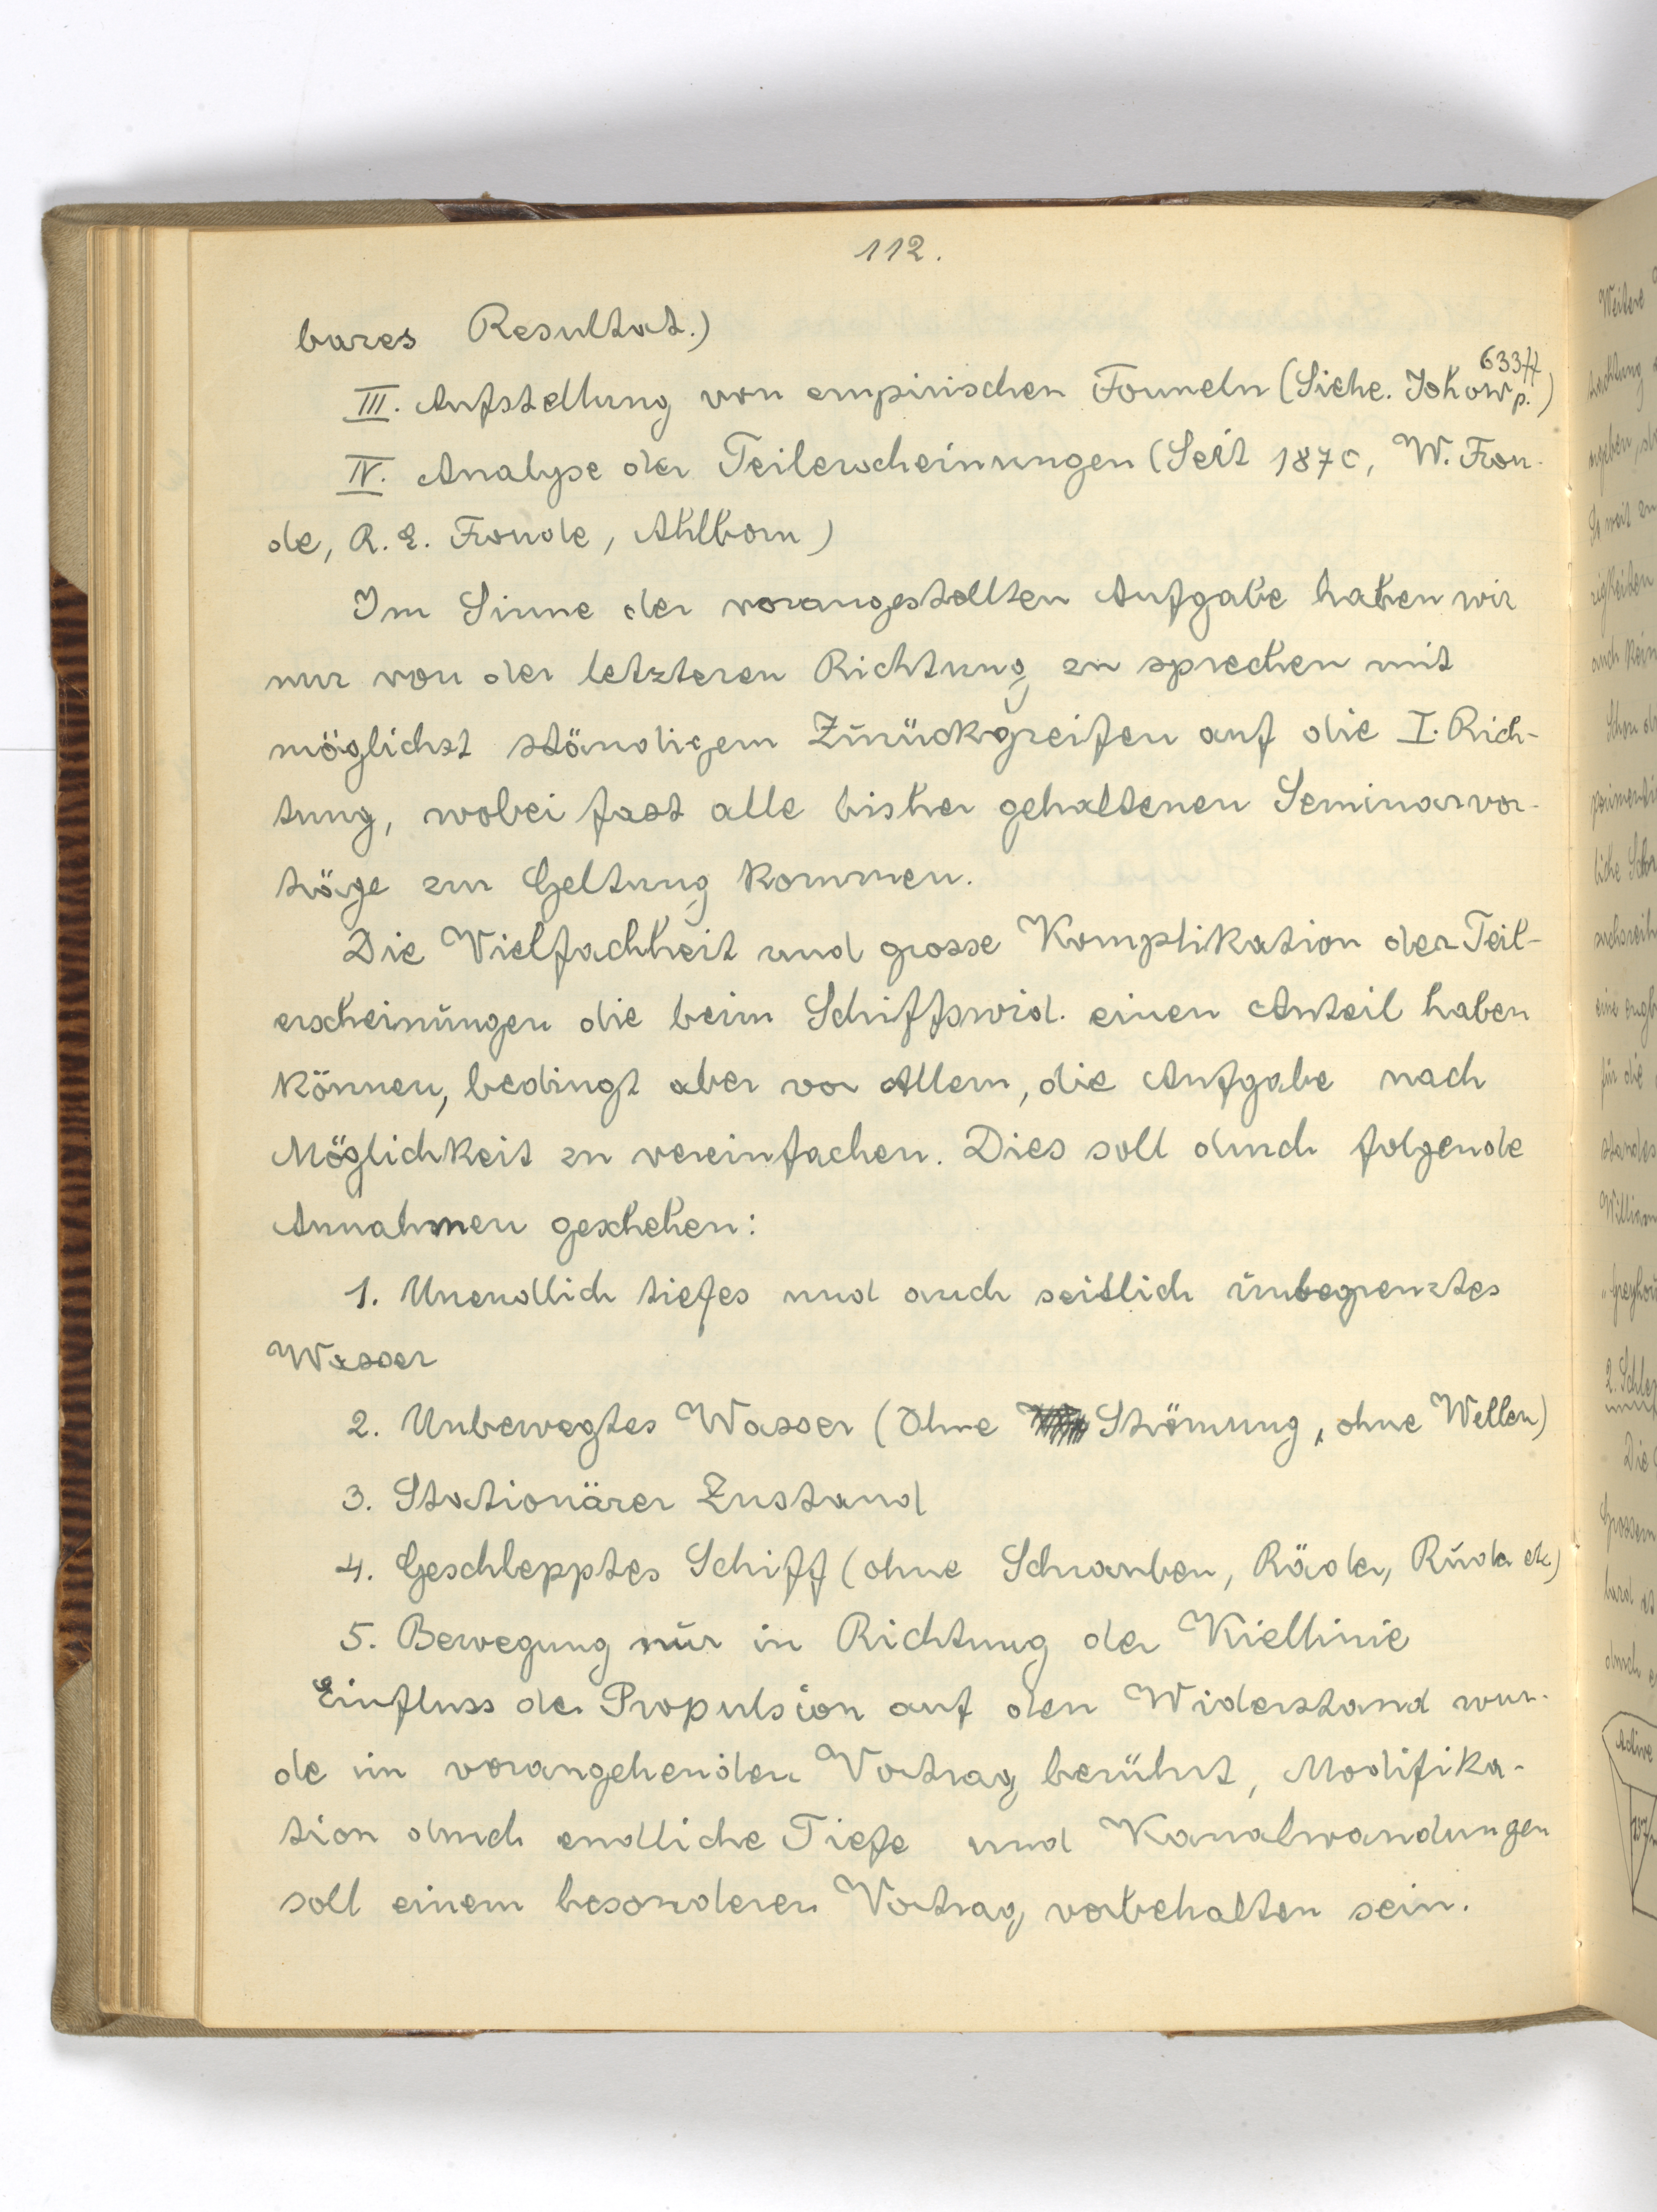 112.
bares Resultat.)
III. Aufstellung von empirischen Formeln (Siehe. Johow p. 633ff)
IV. Analyse der Teilerscheinungen (Seit 1870, W. Frou-
de, R. E. Froude, Ahlborn)
Im Sinne der vorangestellten Aufgabe haben wir
nur von der letzteren Richtung zu sprechen mit
möglichst ständigem Zurückgreifen auf die I. Rich-
tung, wobei fast alle bisher gehaltenen Seminarvor-
träge zur Geltung kommen.
Die Vielfachheit und grosse Komplikation der Teil-
erscheinungen die beim Schiffswid. einen Anteil haben
können, bedingt aber vor Allem, die Aufgabe nach
Möglichkeit zu vereinfachen. Dies soll durch folgende
Annahmen geschehen:
1. Unendlich tiefes und auch seitlich unbegrenztes
Wasser
2. Unbewegtes Wasser (Ohne Strömung, ohne Wellen)
3. Stationärer Zustand
4. Geschlepptes Schiff (ohne Schrauben, Räder, Ruder etc)
5. Bewegung nur in Richtung der Kiellinie
Einfluss der Propulsion auf den Widerstand wur-
de im vorangehenden Vortrag berührt, Modifika-
tion durch endliche Tiefe und Kanalwandungen
soll einem besonderen Vortrag vorbehalten sein.